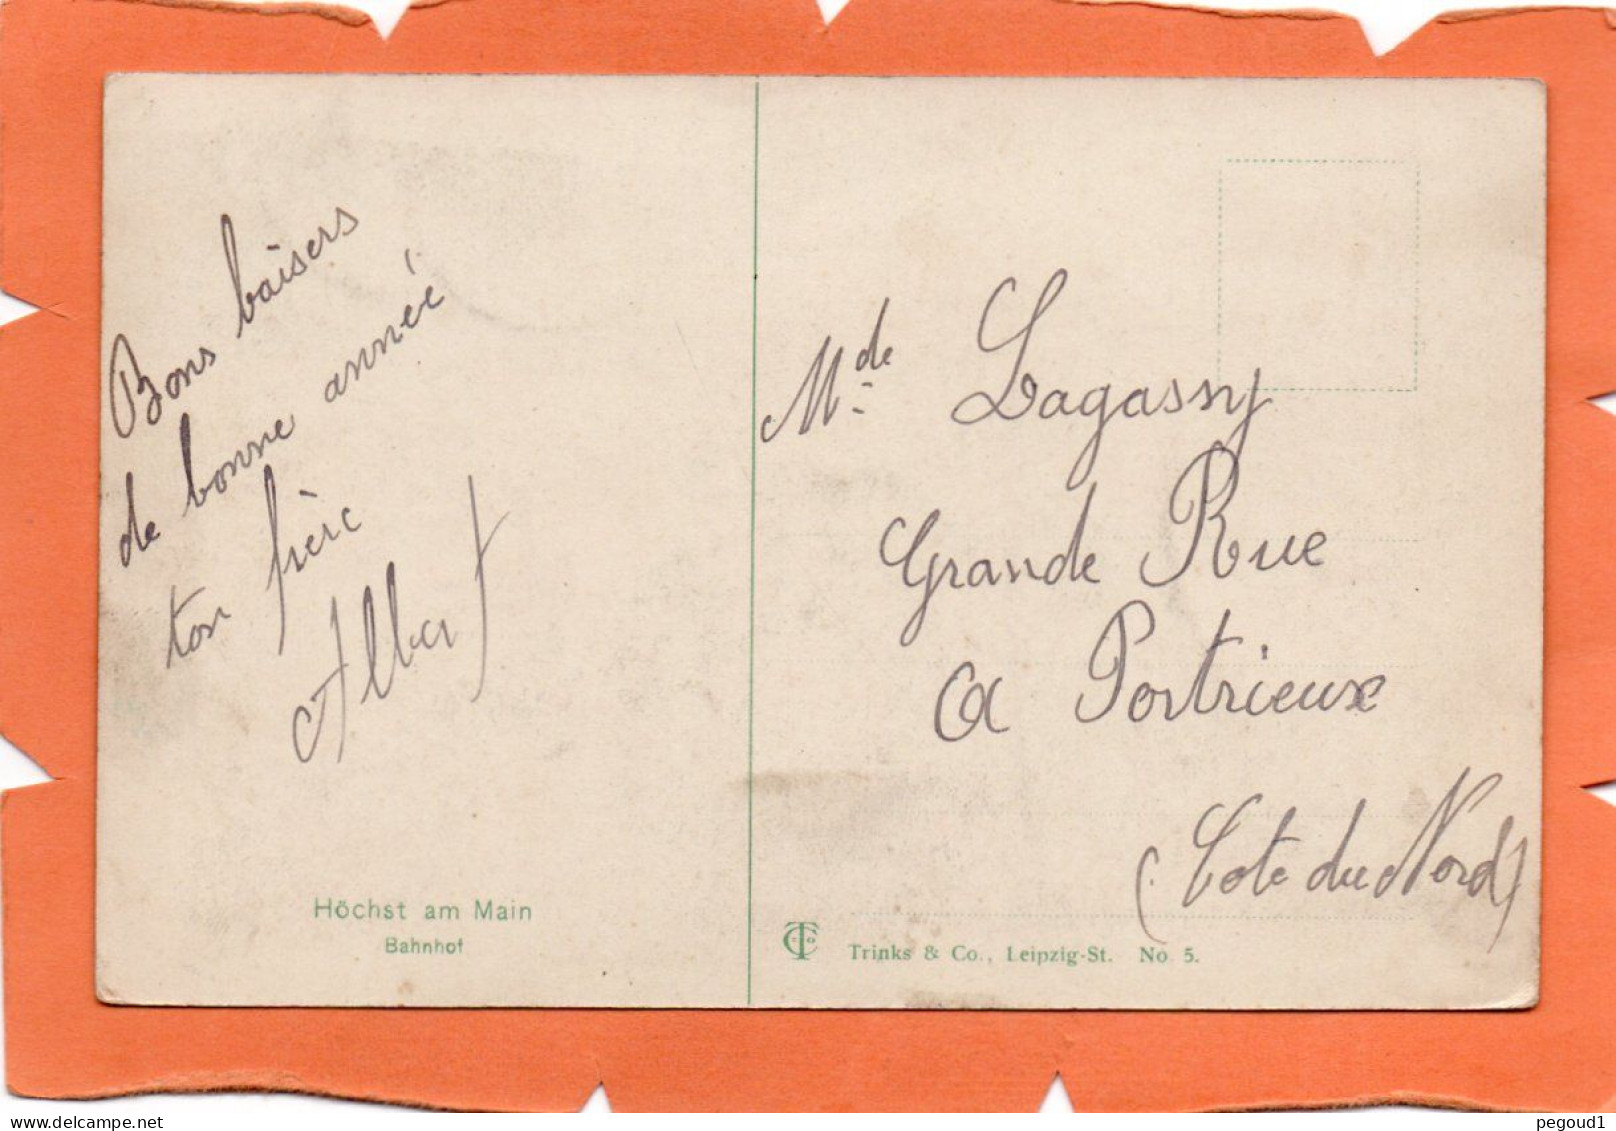 Bons baisers
de bonne année
ton frère
Albert
Höchst am Main
Bahnhof
Mde Lagassy
Grande Rue
a Portrieux
(Cote du Nord)
TC
Trinks & Co., Leipzig-St. No. 5.
pegoud1